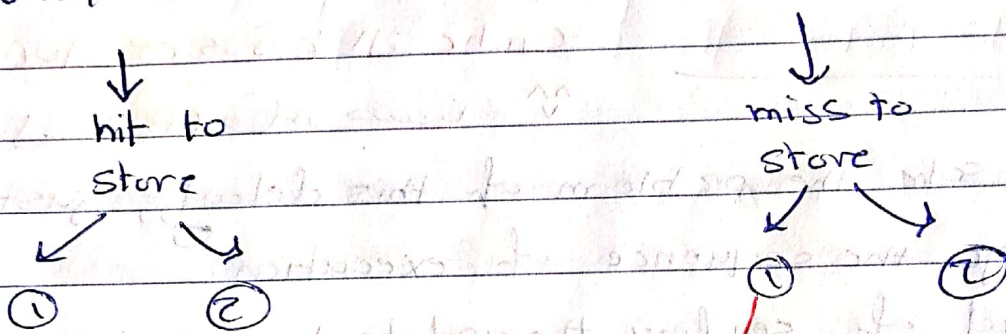 hit to
store
miss to
store
① ②
① ②